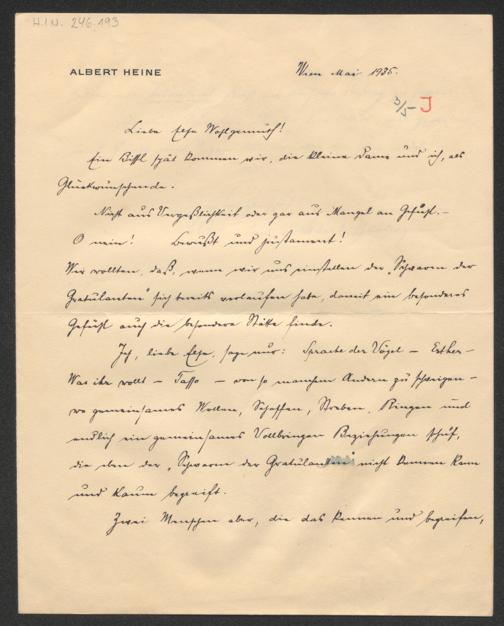 H.I.N. 246.193
ALBERT HEINE
Wien Mai 1935.
3/5 J
Liebe Else Wohlgemuth!
Ein Bissl spät kommen wir, die kleine Dame und ich, als
Glückwünschende.
Nicht aus Vergeßlichkeit oder gar aus Mangel an Gefühl. –
O nein! Bewußt und justament!
Wir wollten, daß, wenn wir uns einstellen der „Schwarm der
Gratulanten" sich bereits verlaufen habe, damit ein besonderes
Gefühl auch die besondere Stätte finde.
Ich, liebe Else, sage nur: Sprache der Vögel – Esther –
Was ihr wollt – Tasso – von so manchem Andern zu schweigen –
wo gemeinsames Wollen, Schaffen, Streben, Ringen und
endlich ein gemeinsames Vollbringen Beziehungen schuf,
die eben der „Schwarm der Gratulanten" nicht kennen kann
und kaum begreift.
Zwei Menschen aber, die das kennen und begreifen,